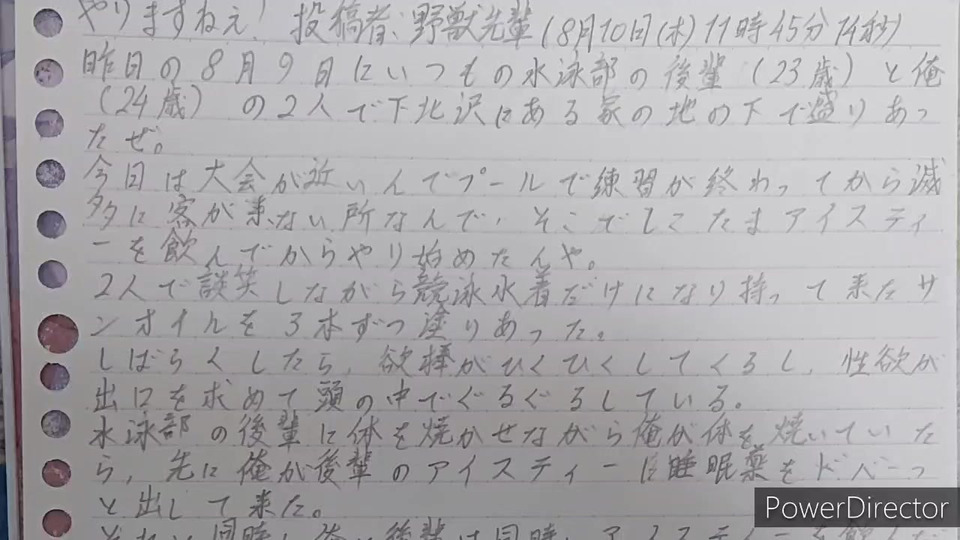 やりますねぇ! 投稿者:野獣先輩(8月10日(木)11時45分14秒)
昨日の8月9日にいつもの水泳部の後輩(23歳)と俺
(24歳)の2人で下北沢にある家の地の下で盛りあっ
たぜ。
今日は大会が近いんでプールで練習が終わってから滅
多に客が来ない所なんで、そこでしこたまアイスティ
ーを飲んでからやり始めたんや。
2人で談笑しながら競泳水着だけになり持って来たサ
ンオイルを3本ずつ塗りあった。
しばらくしたら、欲棒がひくひくしてくるし、性欲が
出口を求めて頭の中でぐるぐるしている。
水泳部の後輩に体を焼かせながら俺が体を焼いていた
ら、先に俺が後輩のアイスティーに睡眠薬をドバーっ
と出して来た。
それと同時に俺も後輩は同時にアイスティーを飲んだ
PowerDirector